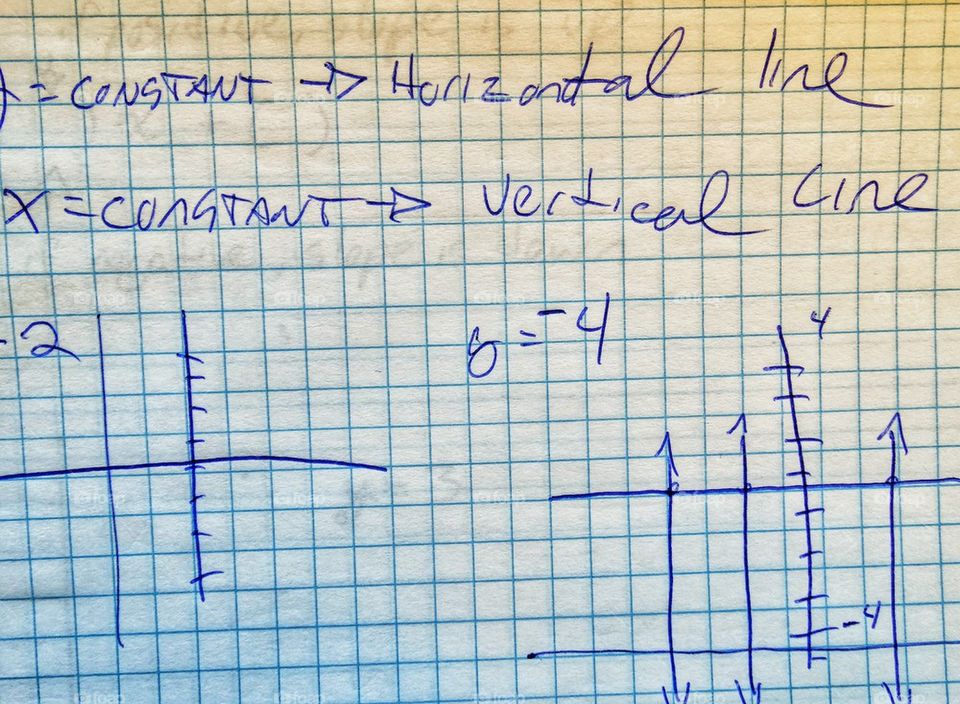 = CONSTANT → Horizontal line
X = CONSTANT → vertical line
-2
= -4
4
-4